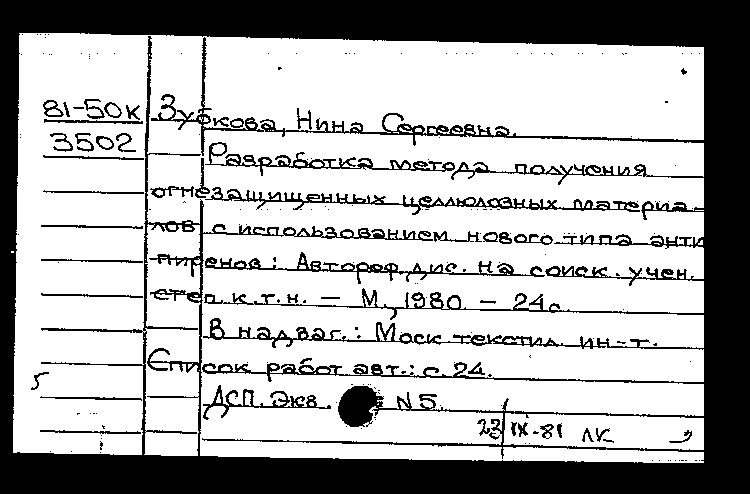 81-50к Зубкова, Нина Сергеевна.
3502
Разработка метода получения
огнезащищенных целлюлозных материа-
лов с использованием нового типа анти
пиренов: Автореф. дис. на соиск. учен.
степ к.т.н. — М., 1980 — 24с
В надзаг.: Моск текстил. ин-т.
Список работ авт.: с. 24.
5
ДСП. Экз. N 5.
23 IX-81 ЛК